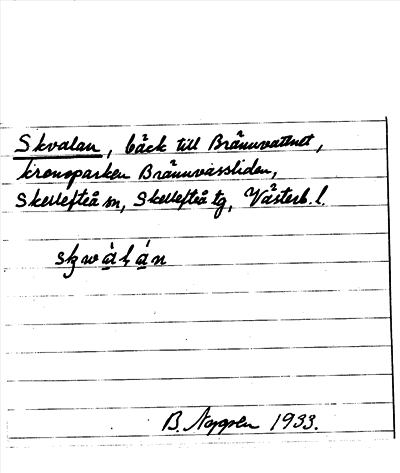 Skvalan, bäck till Brännvattnet,
kronoparken Brännvassliden,
Skellefteå sn, Skellefteå tg, Västerb. l.
B. 1933.